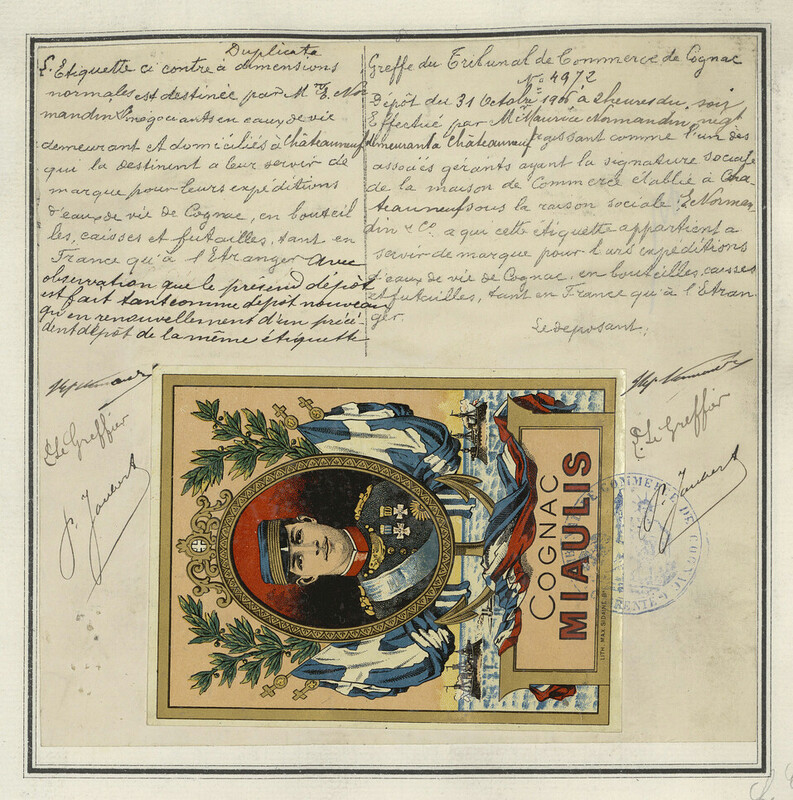 Duplicata
L'Etiquette ci contre à dimensions
normales est destinée par Mrs E. Nor
mandin & négociants en eaux de vie
demeurant et domiciliés à Châteauneuf
qui la destinent a leur servir de
marque pour leurs expéditions
d'eaux de vie de Cognac, en bouteil
les, caisses et futailles, tant en
France qu'à l'Etranger Avec
observation que le présend dépôt
est fait tant comme dépôt nouveau
qu'en renouvellement d'un précé-
dent dépôt de la même étiquette
Greffe du Tribunal de Commerce de Cognac
No 4972
Dépôt du 31 Octobre 1906 à 2 heures du soir
Effectué par Mr Maurice Normandin, negt
demeurant à Châteauneuf agissant comme l'un des
associés gérants ayant la signature sociale
de la maison de Commerce établie à Cha-
teauneuf sous la raison sociale: E. Norman-
din & Co. a qui cette étiquette appartient a
servir de marque pour leurs expéditions
d'eaux de vie de Cognac, en bouteilles, caisses
et futailles, tant en France qu'à l'Etran
ger.
Le déposant,
Le Greffier
P. Jaubert
Le Greffier
P. Jaubert
COGNAC
MIAULIS
LITH. MAX SIDAINE
COMMERCE DE COGNAC